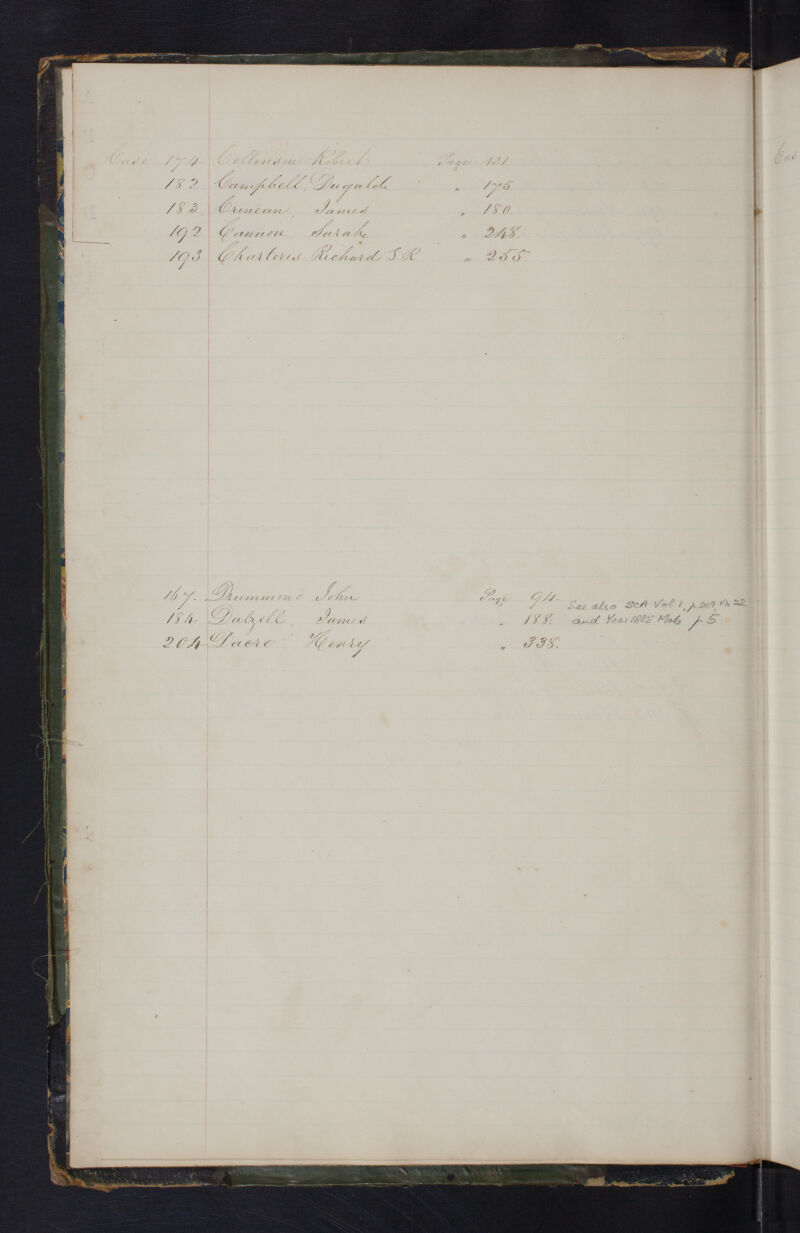 Case 174 Collinson Robert Page 131.
182. Campbell, Dugald " 175.
183. Crinean, James " 180.
192 Cannon Sarah " 248.
193 Charteris Richard S. R. " 255.
167. Drummond John Page 94.
184 Dalzell, James " 188. See also SCA Vol 1, p 209, Ph 22
and Year 1885 Male p 5.
204 Dacre Henry " 338.